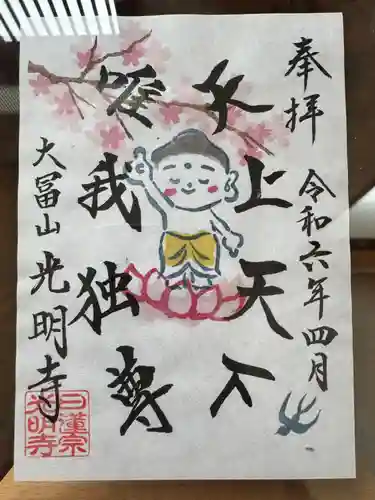 奉拝
令和六年四月
天上天下
唯我独尊
大冨山光明寺
日蓮宗
光明寺